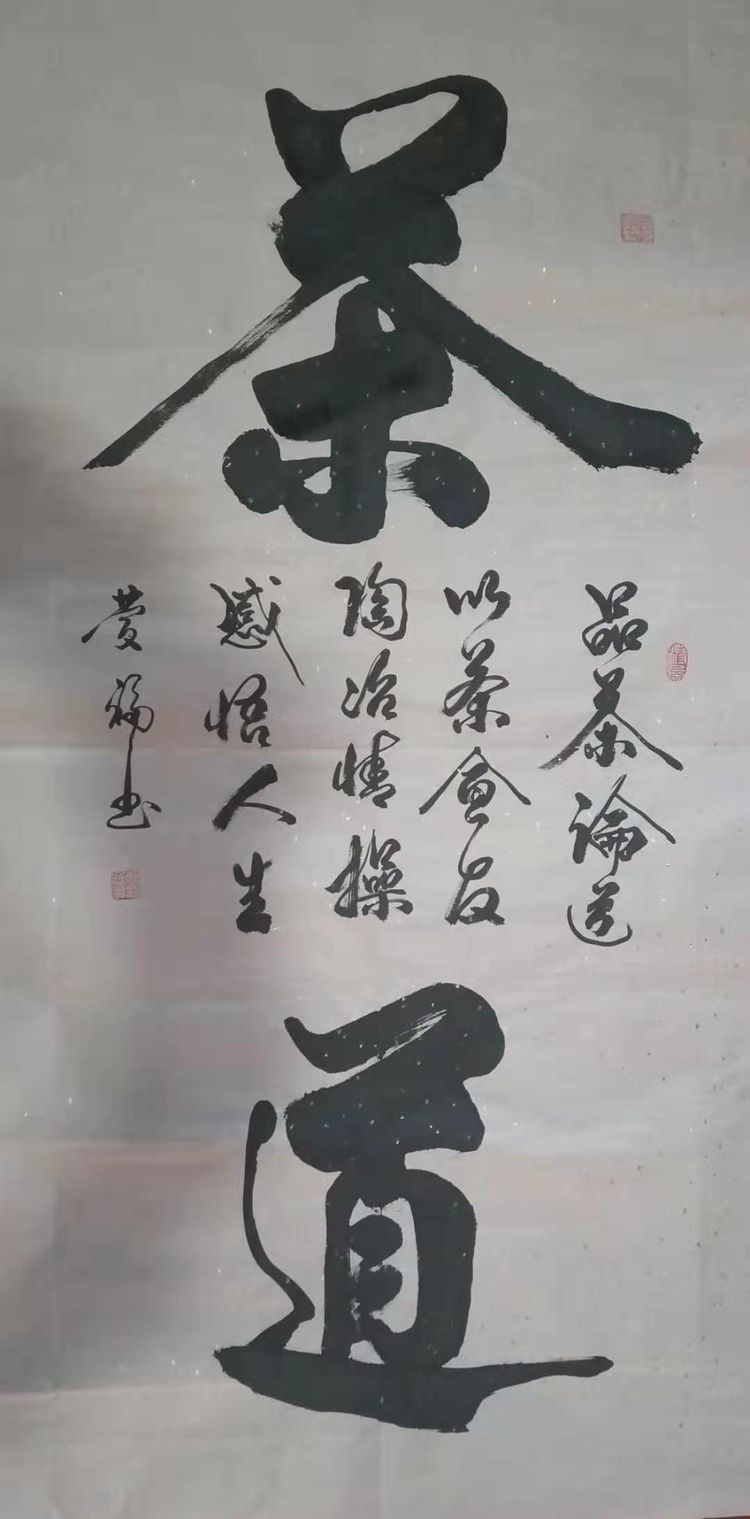 茶
品茶論道
以茶會友
陶冶情操
感悟人生
福书
道